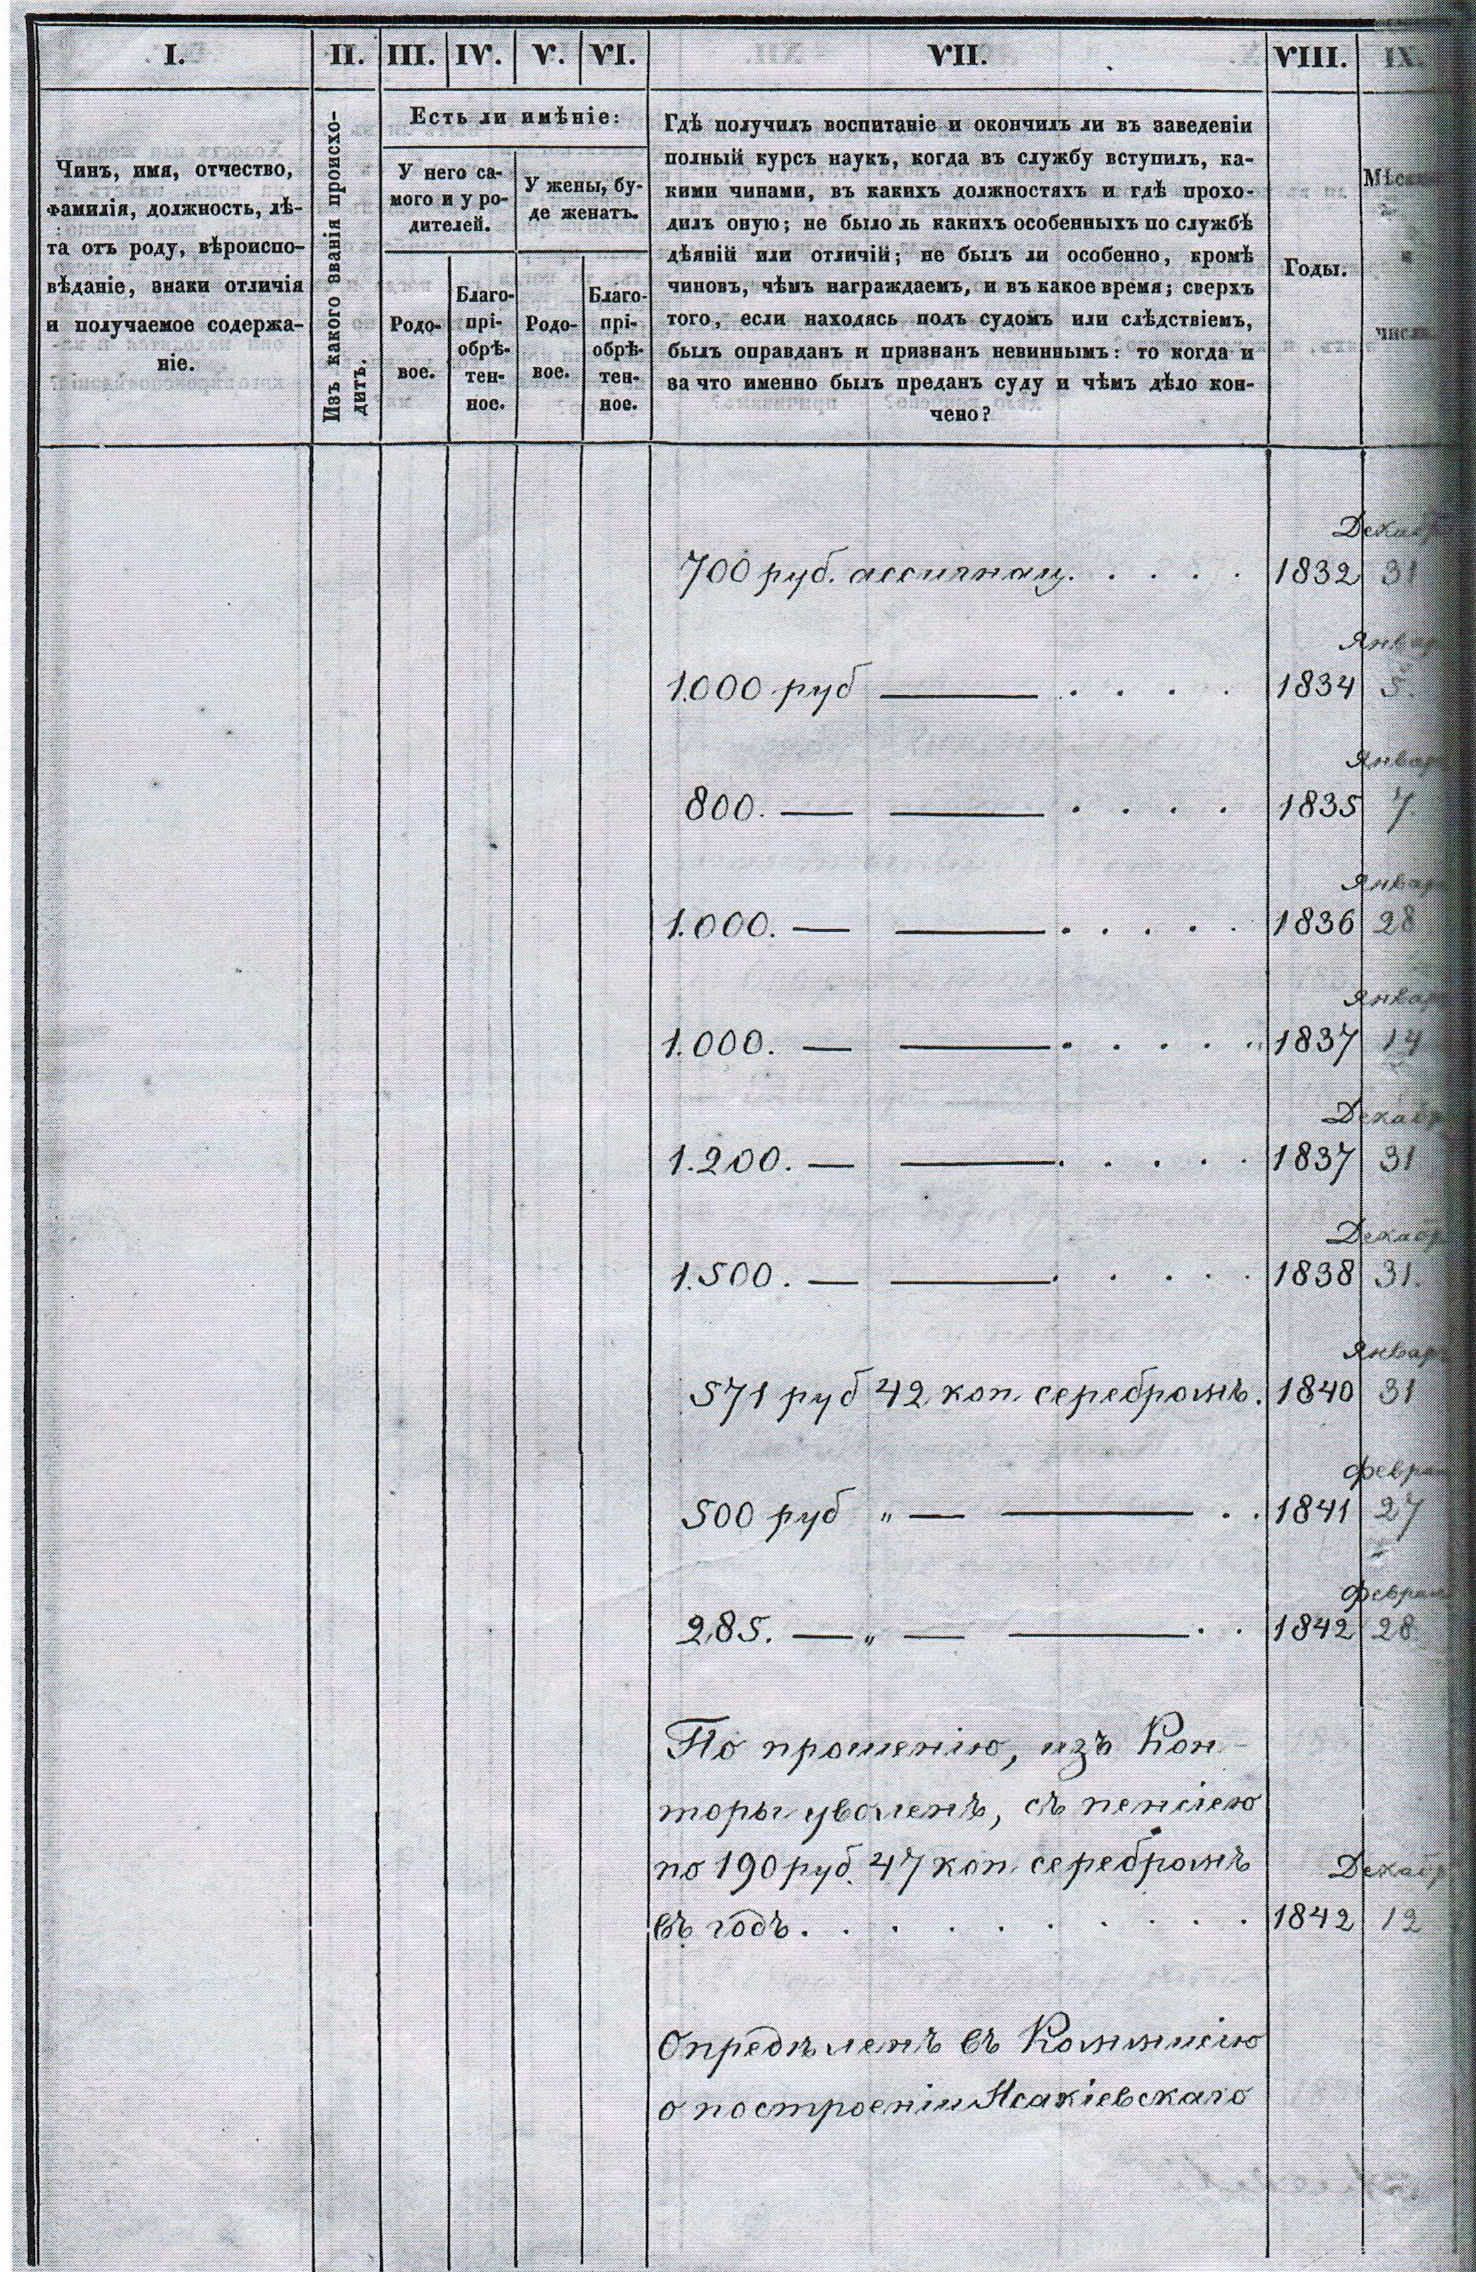 I. II. III. IV. V. VI. VII. VIII. IX.
Чинъ, имя, отчество,
фамилія, должность, лѣ-
та отъ роду, вѣроиспо-
вѣданіе, знаки отличія
и получаемое содержа-
ніе.
Изъ какого званія происхо-
дитъ.
Есть ли имѣніе:
У него са-
мого и у ро-
дителей.
У жены, бу-
де женатъ.
Родо-
вое.
Благо-
прі-
обрѣ-
тен-
ное.
Родо-
вое.
Благо-
прі-
обрѣ-
тен-
ное.
Гдѣ получилъ воспитаніе и окончилъ ли въ заведеніи
полный курсъ наукъ, когда въ службу вступилъ, ка-
кими чинами, въ какихъ должностяхъ и гдѣ прохо-
дилъ оную; не было ль какихъ особенныхъ по службѣ
дѣяній или отличій; не былъ ли особенно, кромѣ
чиновъ, чѣмъ награждаемъ, и въ какое время; сверхъ
того, если находясь подъ судомъ или слѣдствіемъ,
былъ оправданъ и признанъ невиннымъ: то когда и
за что именно былъ преданъ суду и чѣмъ дѣло кон-
чено?
Годы.
Мѣсяцы
и
числа.
Декабр
700 руб. ассигнац. . . . . 1832 31
Январ
1.000 руб — . . . . 1834 5.
Январ
800. — — . . . . 1835 7.
Январ
1.000. — — . . . . . 1836 28
Январ
1.000. — — . . . . . 1837 14
Декабр
1.200. — — . . . . . 1837 31
Декабр
1.500. — — . . . . . 1838 31.
Январ
571 руб 42 коп. серебромъ. 1840 31
Феврал
500 руб „ — — . . 1841 27
Феврал
285. — „ — — . . 1842 28
По прошенію, изъ Кон-
торы уволенъ, съ пенсіею
по 190 руб. 47 коп. серебромъ
Декабр
въ годъ. . . . . . . . . . 1842 12
Опредѣленъ въ Коммисію
о построеніи Исакіевскаго